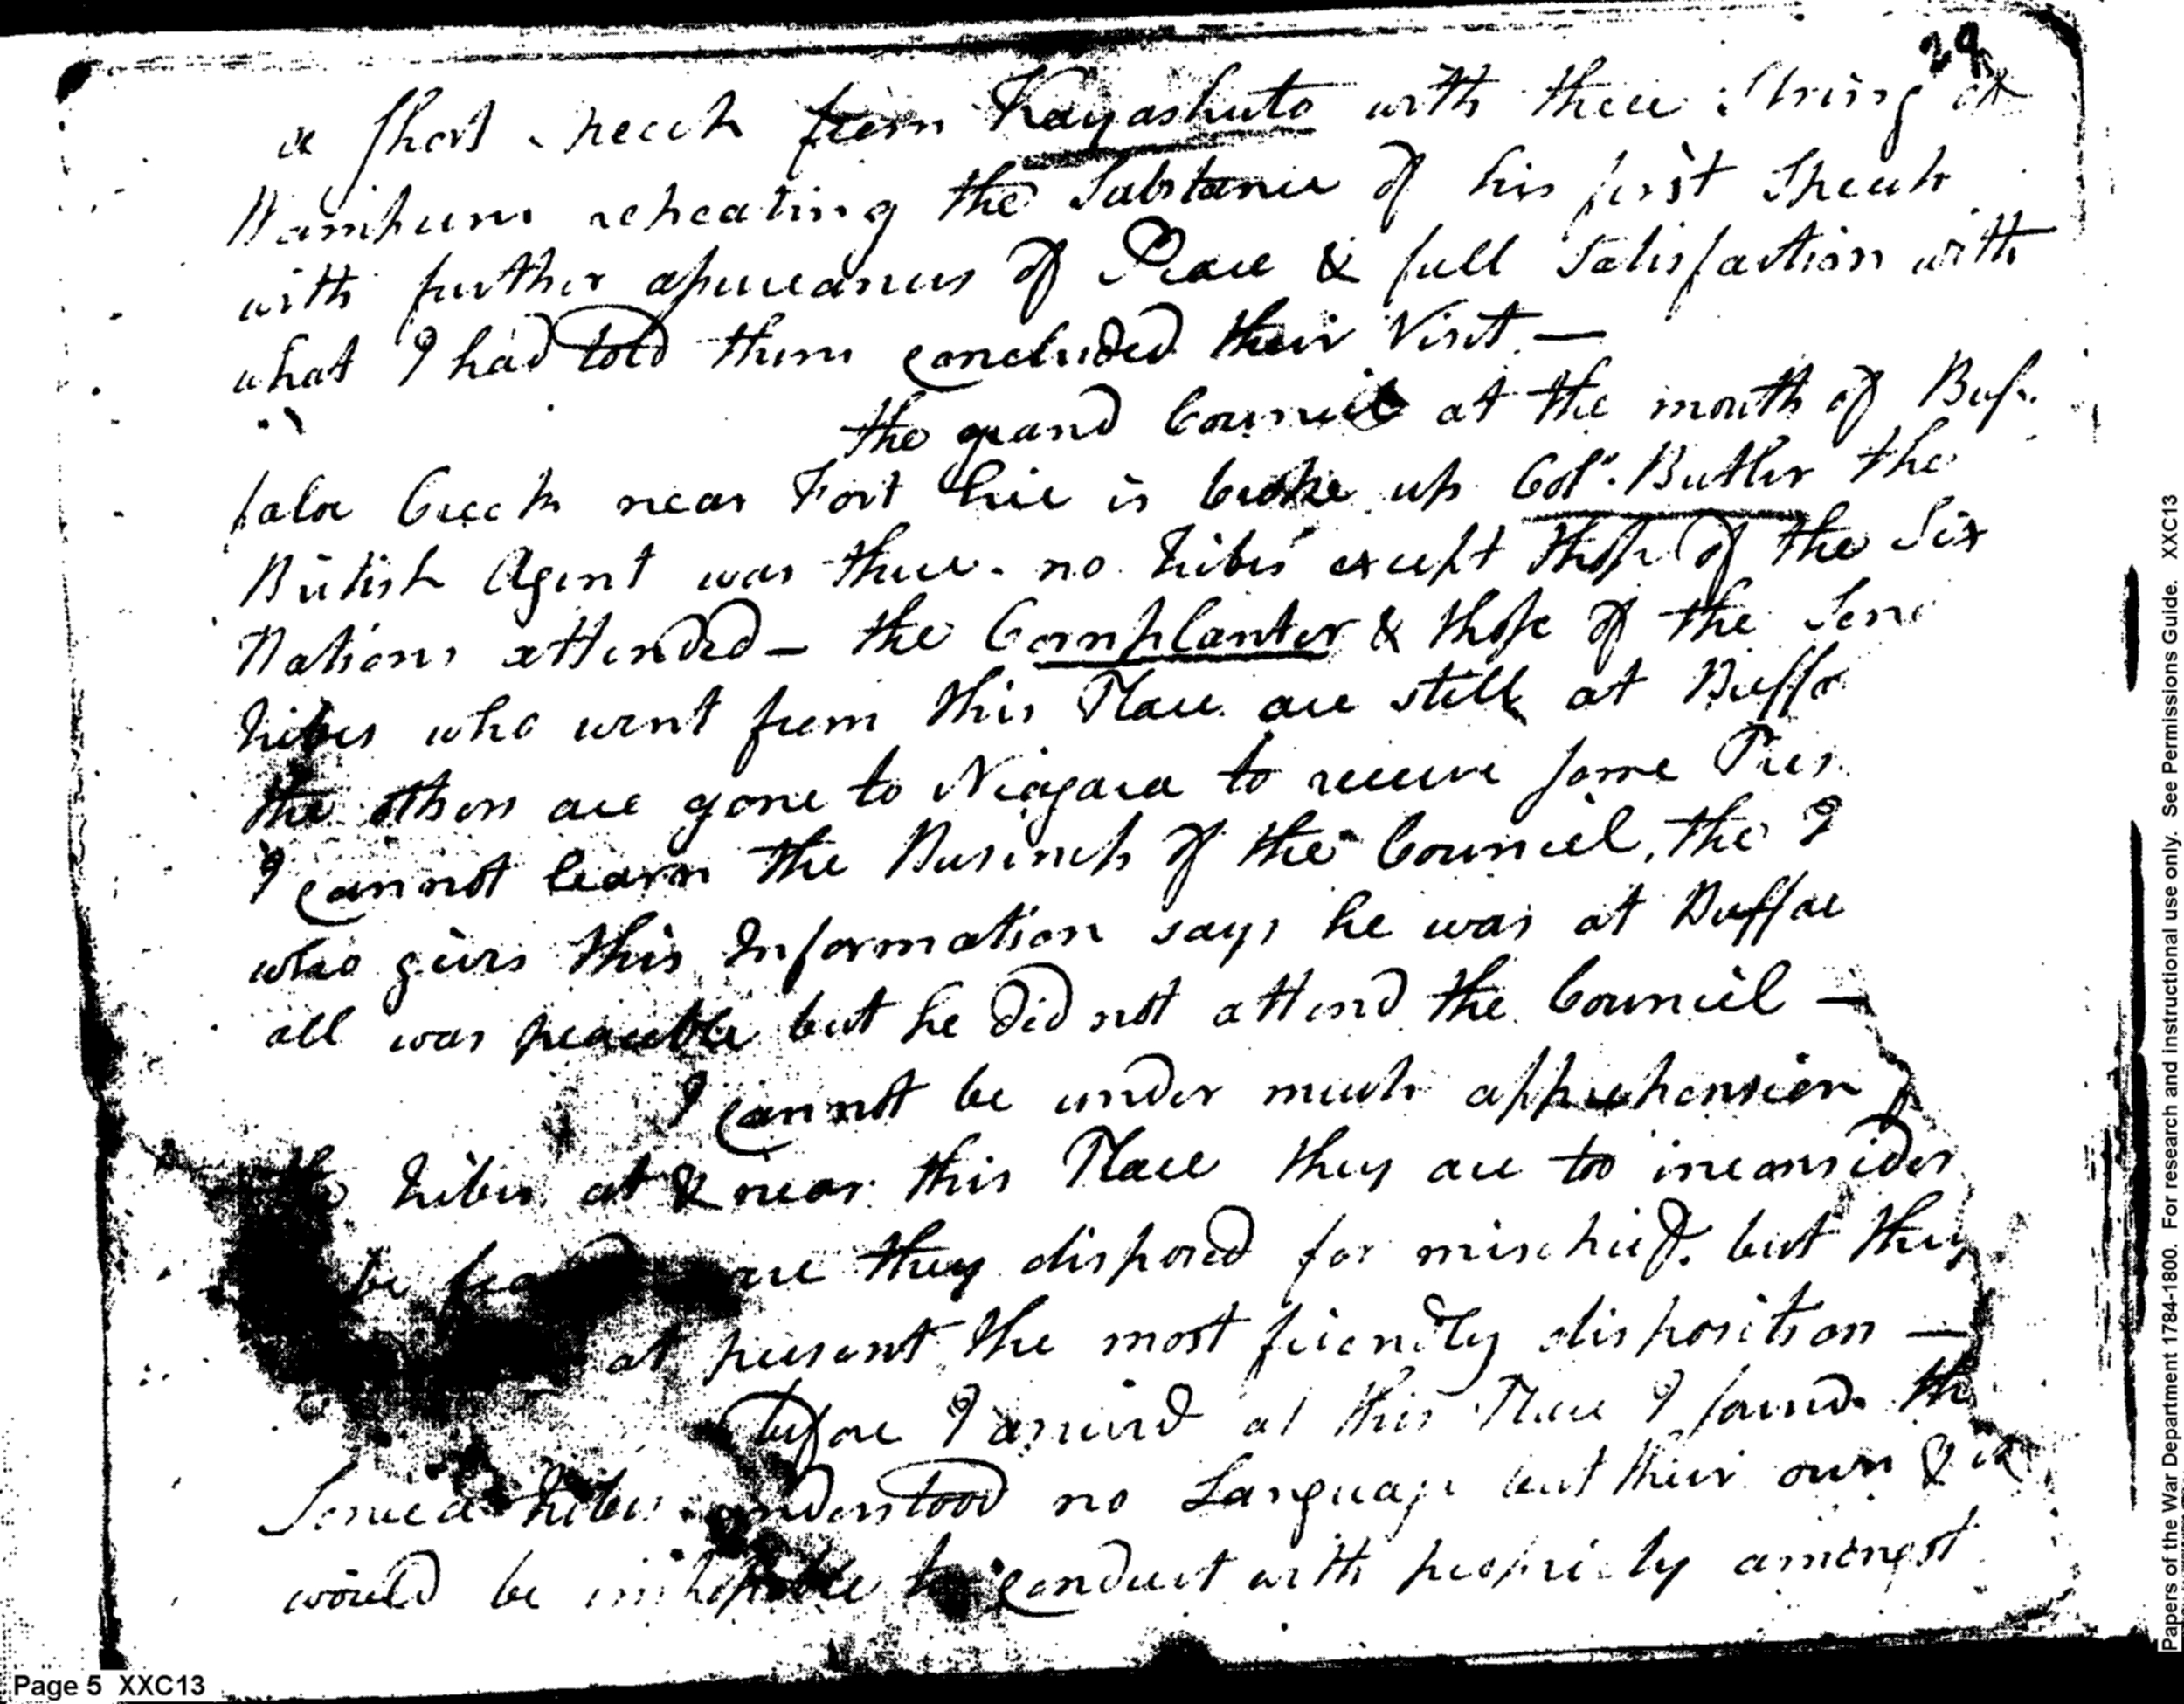 29
a short speech from Kayashuta with three String of
Wampum repeating the Substance of his first Speech
with further assureances of Peace & full Satisfaction with
what I had told them concluded their Visit —
the grand Council at the mouth of Buf-
faloe Creek near Fort Erie is broke up Col.º Butler the
British Agent was there. no tribes except those of the Six
Nations attended — the Cornplanter & those of the Sene
tribes who went from this Place are still at Buffa
the others are gone to Niagara to receive some Pres
I cannot learn the Business of the Council, the I
who gives this Information says he was at Buffae
all was peaceble but he did not attend the Council —
I cannot be under much apprehension
the tribes at & near this Place they are too inconsider
be are they disposed for mischief. but they
at present the most friendly disposition —
before I arrived at this Place I found the
Seneca tribes understood no Language but their own & it
would be impossible to conduct with propriety amongst
Page 5 XXC13
Papers of the War Department 1784-1800. For research and instructional use only. See Permissions Guide. XXC13